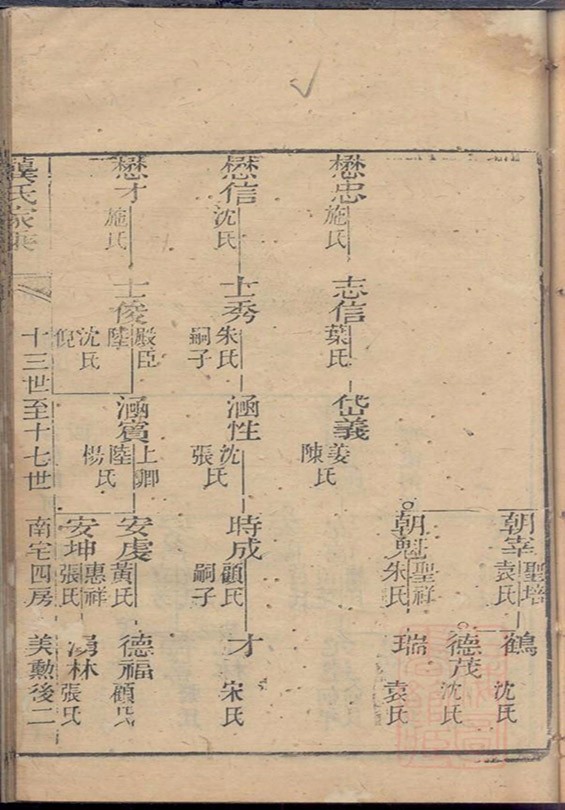 朝宰 聖培 袁氏 鶴 沈氏
德茂 沈氏
朝魁 聖祥 朱氏 瑞 袁氏
懋忠 施氏 志信 葉氏 岱義 姜氏 陳
懋信 沈氏 士秀 朱氏 嗣子 涵性 沈氏 張 時成 顧氏 嗣子 才 宋氏
懋才 施氏 士俊 殿臣 陸 沈氏 倪 涵賓 上卿 陸氏 楊 安虔 黃氏 德福 顧氏
安坤 惠祥 張氏 湧林 張氏
龔氏家乘 十三世至十七世 南宅四房 美勲後二